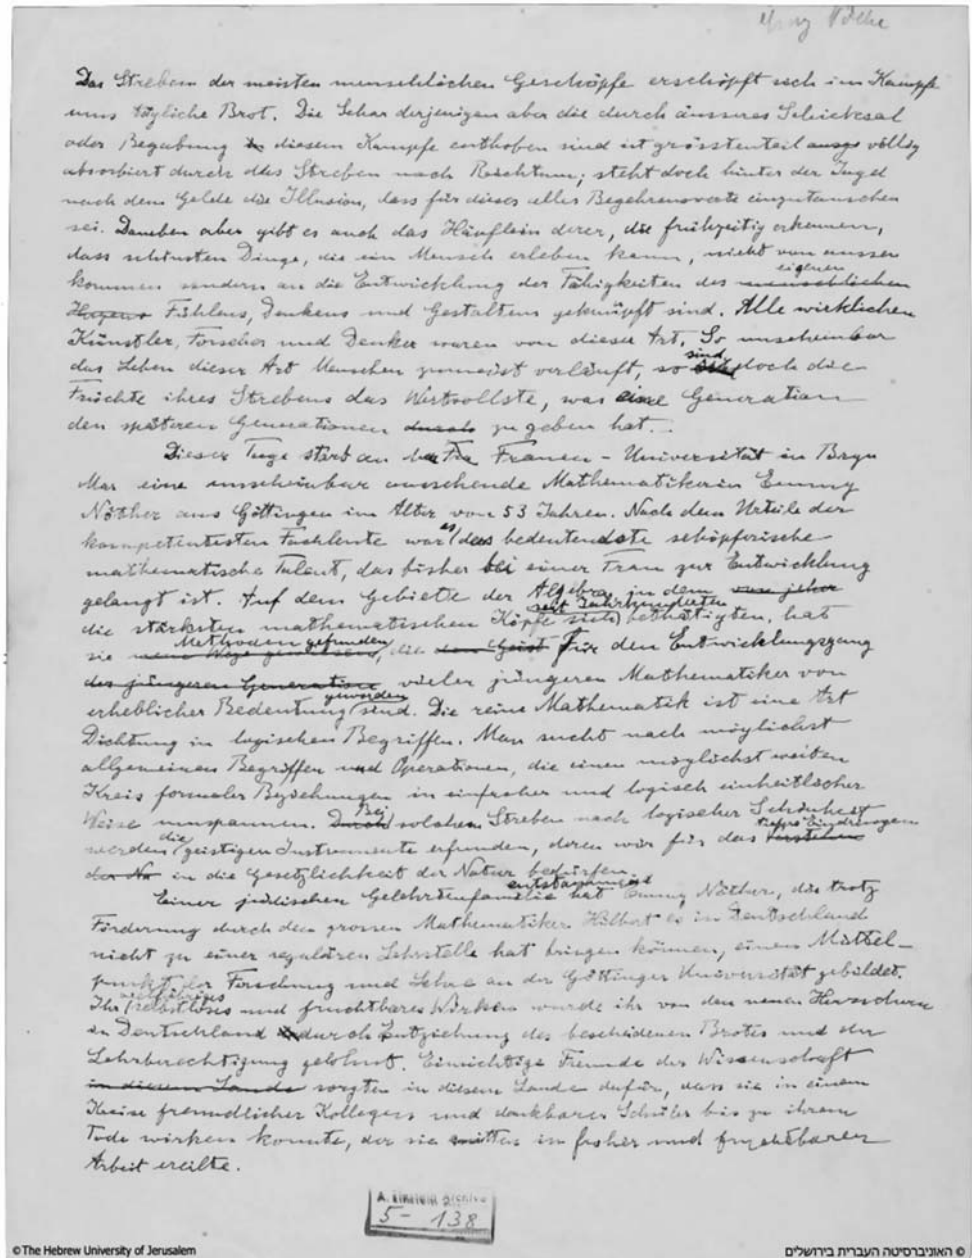 Emmy Nöthe
Das Streben der meisten menschlichen Geschöpfe erschöpft sich im Kampfe
ums tägliche Brot. Die Schar derjenigen aber die durch äusseres Schicksal
oder Begabung diesem Kampfe enthoben sind ist grösstenteil völlig
absorbiert durch das Streben nach Reichtum; steht doch hinter der Jagd
nach dem Gelde die Illusion, dass für dieses alles Begehrenswerte einzutauschen
sei. Daneben aber gibt es auch das Häuflein derer, die frühzeitig erkennen,
dass schönsten Dinge, die ein Mensch erleben kann, nicht von aussen
eigenen
kommen sondern an die Entwicklung der Fähigkeiten des menschlichen
Fühlens, Denkens und Gestaltens geknüpft sind. Alle wirklichen
Künstler, Forscher und Denker waren von dieser Art. So unscheinbar
sind
das Leben dieser Art Menschen zumeist verläuft, so doch die
Früchte ihres Strebens das Wertvollste, was eine Generation
den späteren Generationen durch zu geben hat.
Dieser Tage starb an der Frauen-Universität in Bryn
Mar eine unscheinbar aussehende Mathematikerin Emmy
Nöther aus Göttingen im Alter von 53 Jahren. Nach dem Urteile der
kompetentesten Fachleute war es das bedeutendste schöpferische
mathematische Talent, das bisher bei einer Frau zur Entwicklung
gelangt ist. Auf dem Gebiete der Algebra, in dem von jeher
seit Jahrhunderten
die stärksten mathematischen Köpfe sich bethätigten, hat
Methoden gefunden
sie neue Wege gewiesen, die den Geist für den Entwicklungsgang
der jüngeren Generation vieler jüngeren Mathematiker von
geworden
erheblicher Bedeutung sind. Die reine Mathematik ist eine Art
Dichtung in logischen Begriffen. Man sucht nach möglichst
allgemeinen Begriffen und Operationen, die einen möglichst weiten
Kreis formaler Beziehungen in einfacher und logisch einheitlicher
Bei
Weise umspannen. Durch solchem Streben nach logischer Schönheit
die tiefere Eindringen
werden geistigen Instrumente erfunden, deren wir für das Verstehen
der Na in die Gesetzlichkeit der Natur bedürfen.
entstammend
Einer jüdischen Gelehrtenfamilie hat Emmy Nöther, die trotz
Förderung durch den grossen Mathematiker Hilbert es in Deutschland
nicht zu einer regulären Lehrstelle hat bringen können, einen Mittel-
punkt der Forschung und Lehre an der Göttinger Universität gebildet.
Ihr selbstloses und fruchtbares Wirken wurde ihr von den neuen Herrschern
in Deutschland durch Entziehung des bescheidenen Brotes und der
Lehrberechtigung gelohnt. Einsichtige Freunde der Wissenschaft
in diesem Lande sorgten in diesem Lande dafür, dass sie in einem
Kreise freundlicher Kollegen und dankbarer Schüler bis zu ihrem
Tode wirken konnte, der sie mitten in froher und fruchtbarer
Arbeit ereilte.
A. Einstein Archive
5-138
©The Hebrew University of Jerusalem
© האוניברסיטה העברית בירושלים